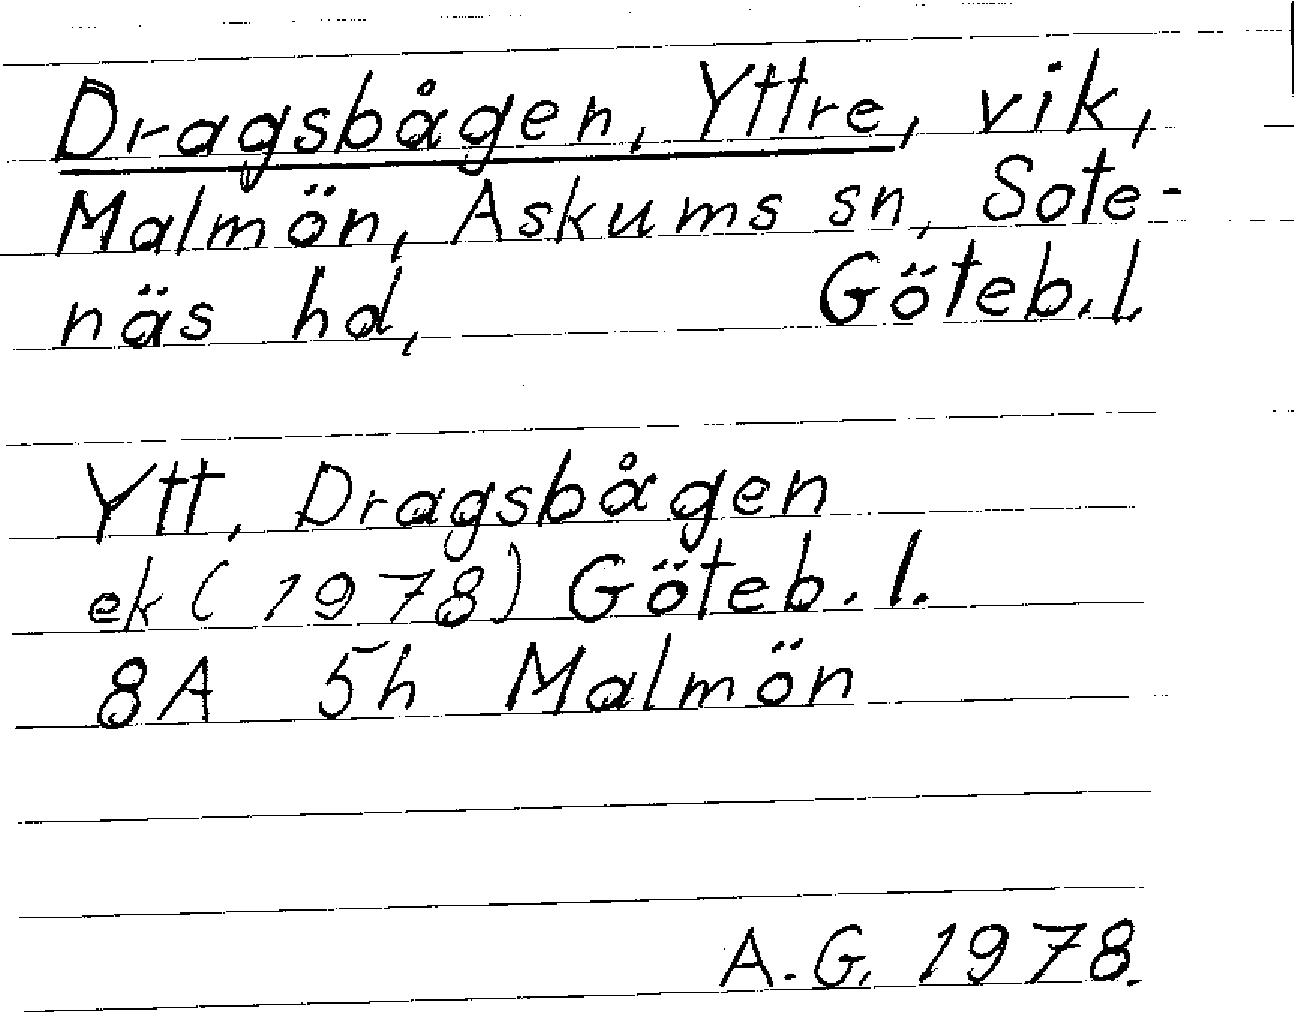 Dragsbågen, Yttre, vik,
Malmön, Askums sn, Sote-
näs hd, Göteb.l.
Ytt. Dragsbågen
ek (1978) Göteb. l.
8A 5h Malmön
A.G. 1978.